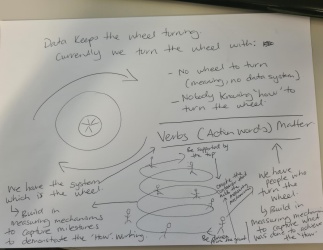 Data keeps the wheel turning.
Currently we turn the wheel with:
- No wheel to turn
(meaning, no data system)
- Nobody knowing 'how' to
turn the wheel
Verbs (Action words) Matter
- Be supported by
the top
We have the system
which is the wheel
↳ Build in
measuring mechanisms
to capture milestones
to demonstrate the 'How' working.
We have
people who
turn the
wheel
↳ Build in
measuring mechanisms
to capture what
was done to achieve
the 'How'